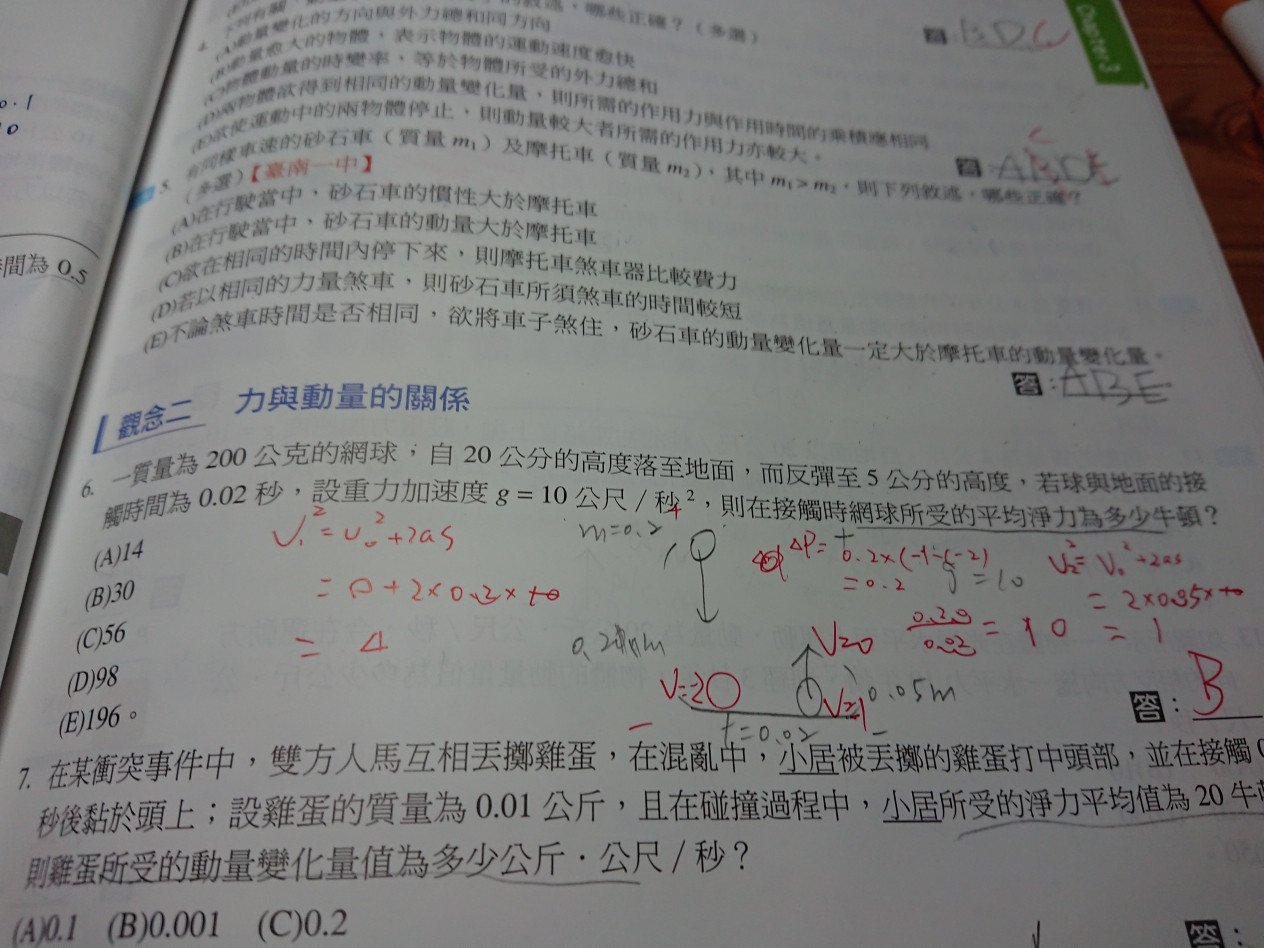 哪些正確？（多選）
答：BDC
Chapter 3
(A)動量變化的方向與外力總和同方向
(B)動量愈大的物體，表示物體的運動速度愈快
(C)物體動量的時變率，等於物體所受的外力總和
(D)兩物體欲得到相同的動量變化量，則所需的作用力與作用時間的乘積應相同
(E)欲使運動中的兩物體停止，則動量較大者所需的作用力亦較大。
C
答：ABDE
5. 有同樣車速的砂石車（質量 m₁）及摩托車（質量 m₂），其中 m₁ > m₂，則下列敘述，哪些正確？
（多選）【臺南一中】
(A)在行駛當中，砂石車的慣性大於摩托車
(B)在行駛當中，砂石車的動量大於摩托車
(C)欲在相同的時間內停下來，則摩托車煞車器比較費力
(D)若以相同的力量煞車，則砂石車所須煞車的時間較短
(E)不論煞車時間是否相同，欲將車子煞住，砂石車的動量變化量一定大於摩托車的動量變化量。
答：ABE
間為 0.5
觀念二 力與動量的關係
6. 一質量為 200 公克的網球，自 20 公分的高度落至地面，而反彈至 5 公分的高度，若球與地面的接
觸時間為 0.02 秒，設重力加速度 g = 10 公尺／秒²，則在接觸時網球所受的平均淨力為多少牛頓？
(A)14
(B)30
(C)56
(D)98
(E)196。
V₁² = V₀² + 2as
= 0 + 2×0.2×10
= 4
m=0.2
ΔP=
0.2×(-1-(-2)
= 0.2
g=10
V₂² = V₀² + 2as
= 2×0.05×10
= 1
0.20/0.02 = 10
V=0
V=2
V=1
0.05m
t=0.02
答：B
7. 在某衝突事件中，雙方人馬互相丟擲雞蛋，在混亂中，小居被丟擲的雞蛋打中頭部，並在接觸
秒後黏於頭上；設雞蛋的質量為 0.01 公斤，且在碰撞過程中，小居所受的淨力平均值為 20 牛
則雞蛋所受的動量變化量值為多少公斤．公尺／秒？
(A)0.1 (B)0.001 (C)0.2
答：